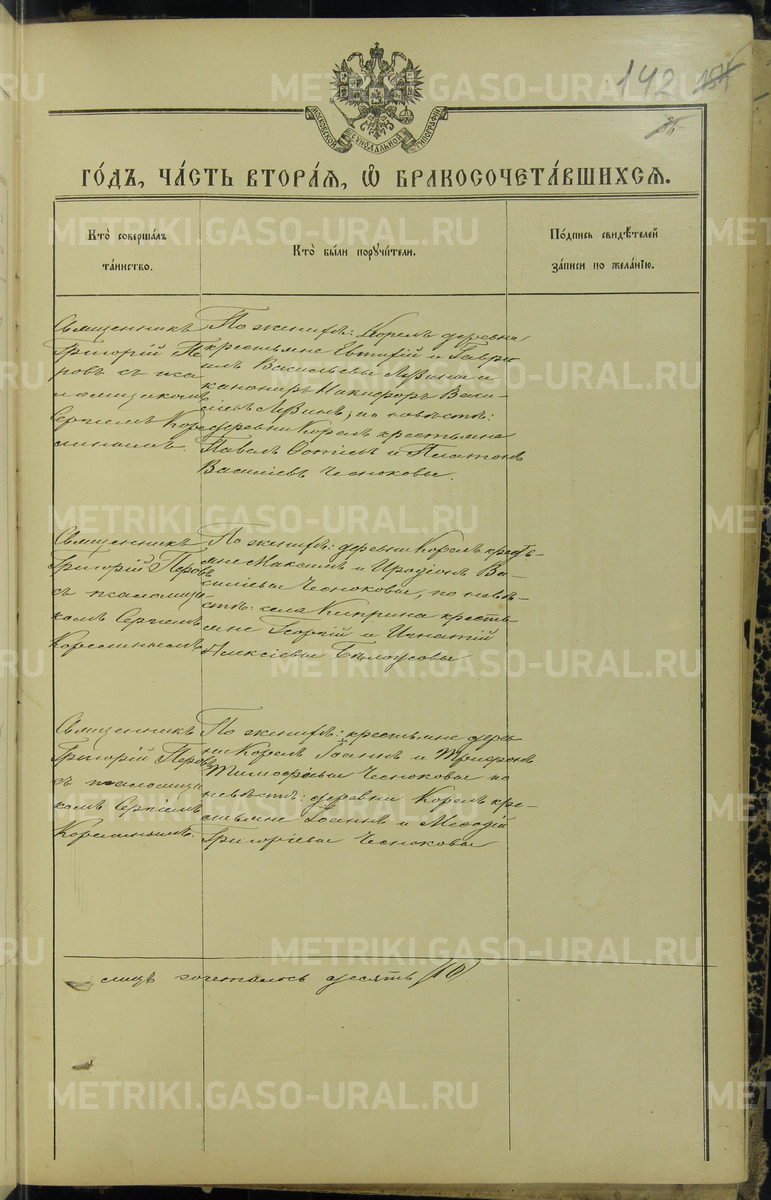 142
МОСКОВСКОЙ СѴНОДАЛЬНОЙ ТИПОГРАФІИ
ГО́ДЪ, ЧА́СТЬ ВТОРА́Я, Ѽ БРАКОСОЧЕТА́ВШИХСЯ.
Кто̀ соверша́лъ
та́инство.
Кто̀ бы́ли порꙋчи́тели.
По́дпись свидѣ́телей
за́писи по жела́нїю.
Священникъ
Григорій Пе
ровъ съ пса
ломщикомъ
Сергіемъ Коре
линымъ.
По женихѣ: Корелъ деревни
крестьяне Евтифій и Гаври
илъ Васильевы и
канониръ Никифоръ Васи-
ліевъ; по невѣстѣ:
деревни Корелъ крестьяне
Павелъ и Платонъ
Василіевъ Чесноковы.
Священникъ
Григорій Перовъ
съ псаломщи
комъ Сергіемъ
Корелинымъ
По женихѣ: деревни Корелъ кресть-
яне Максимъ и Иродіонъ Ва-
силіевы Чесноковы; по невѣ-
стѣ: села Киприна кресть
яне Георгій и Игнатій
Алексіевы Бѣлоусовы
Священникъ
Григорій Перовъ
съ псаломщи
комъ Сергіемъ
Корелинымъ.
По женихѣ: крестьяне дерев
ни Корелъ Іоаннъ и Трифонъ
Тимофѣевы Чесноковы по
невѣстѣ: деревни Корелъ кре-
стьяне Іоаннъ и Меѳодій
Григоріевы Чесноковы
лицъ сочеталось десять (10).
METRIKI.GASO-URAL.RU